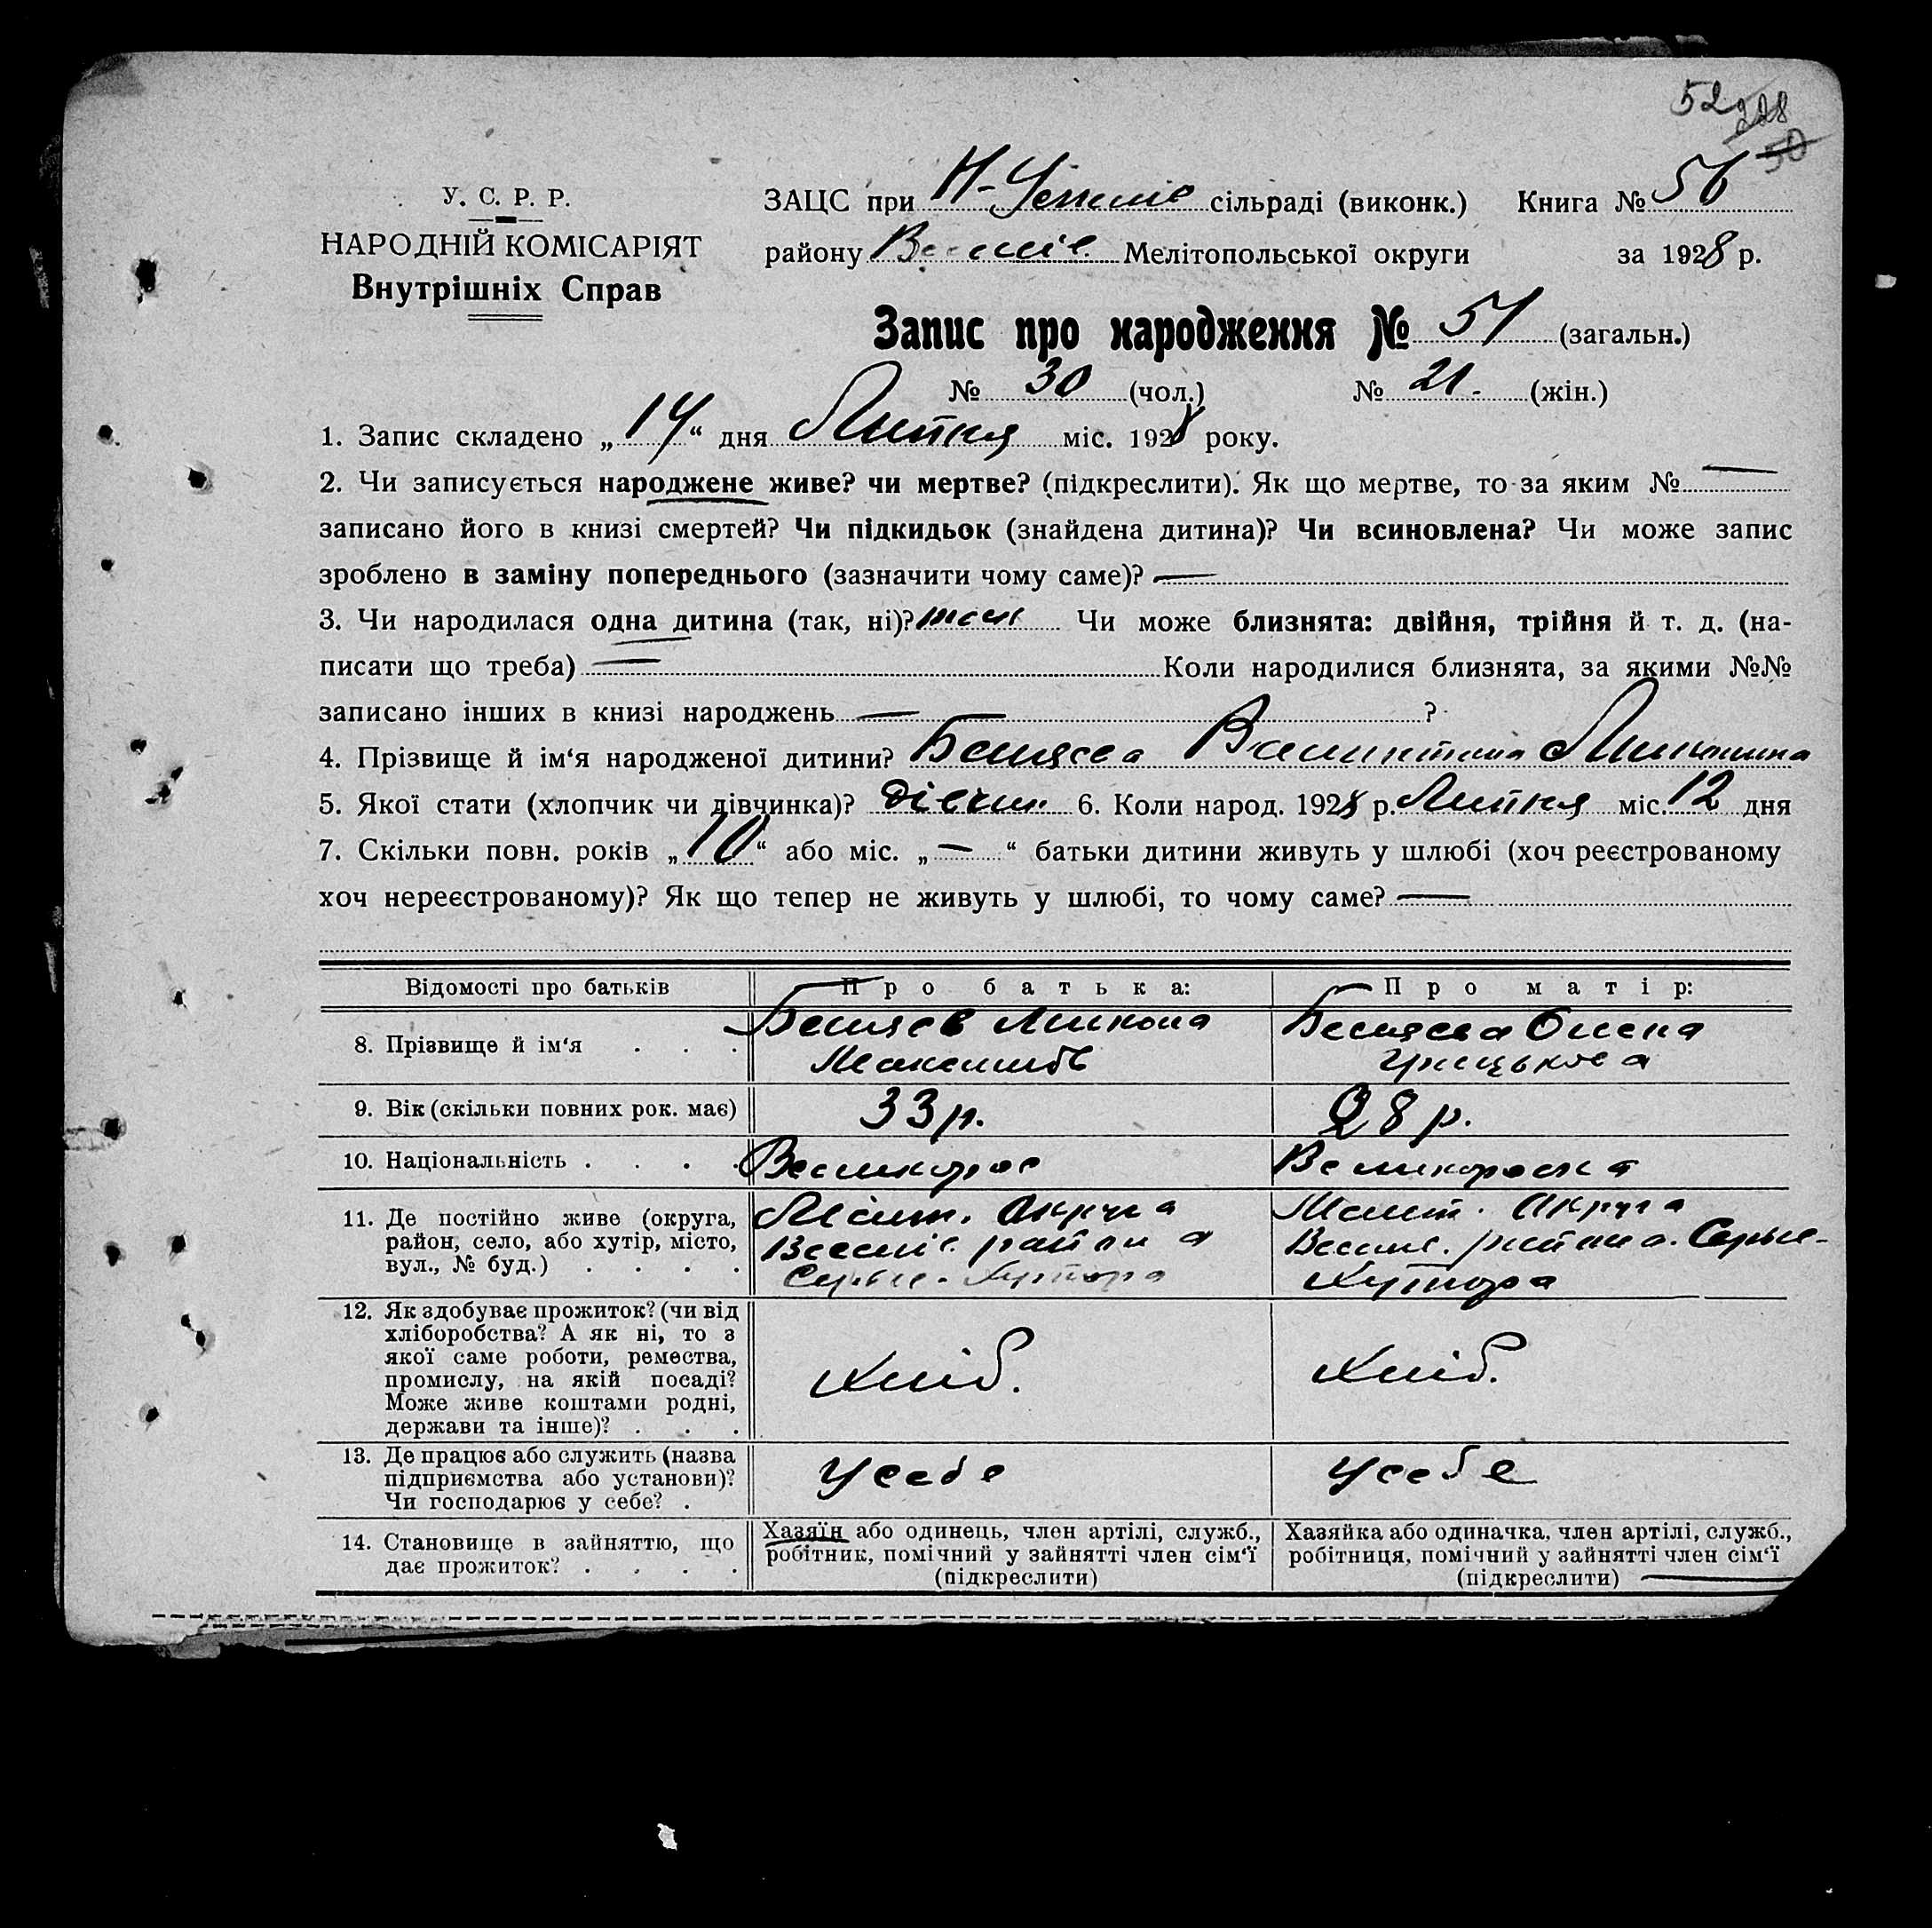 52 228
50
У. С. Р. Р.
НАРОДНІЙ КОМІСАРІЯТ
Внутрішніх Справ
ЗАЦС при Н- сільраді (виконк.) Книга № 56
району Веселів. Мелітопольської округи за 1928 р.
Запис про народження № 51 (загальн.)
№ 30 (чол.) № 21. (жін.)
1. Запис складено „14“ дня Липня міс. 1928 року.
2. Чи записується народжене живе? чи мертве? (підкреслити). Як що мертве, то за яким № —
записано його в книзі смертей? Чи підкидьок (знайдена дитина)? Чи всиновлена? Чи може запис
зроблено в заміну попереднього (зазначити чому саме)? —
3. Чи народилася одна дитина (так, ні)? так Чи може близнята: двійня, трійня й т. д. (на-
писати що треба) — Коли народилися близнята, за якими №№
записано інших в книзі народжень — ?
4. Прізвище й ім‘я народженої дитини? Валентина
5. Якої стати (хлопчик чи дівчинка)? дівчин 6. Коли народ. 1928 р. Липня міс. 12 дня
7. Скільки повн. років „10“ або міс. „—“ батьки дитини живуть у шлюбі (хоч реєстрованому
хоч нереєстрованому)? Як що тепер не живуть у шлюбі, то чому саме? —
Відомості про батьків Про батька: Про матір:
8. Прізвище й ім‘я . . . Микола Олена
Максимов Грицькова
9. Вік (скільки повних рок. має) 33 р. 28 р.
10. Національність . . . . Великорос Великороска
11. Де постійно живе (округа, Меліт. Округа Меліт. Округа
район, село, або хутір, місто, Веселів. района Веселів. района.
вул., № буд.) . . . . Хутора Хутора
12. Як здобуває прожиток? (чи від
хліборобства? А як ні, то з
якої саме роботи, ремества,
промислу, на якій посаді? Хліб. Хліб.
Може живе коштами родні,
держави та інше)? . . .
13. Де працює або служить (назва
підприємства або установи)? У себе У себе
Чи господарює у себе? .
14. Становище в зайняттю, що
дає прожиток? . . . .
Хазяїн або одинець, член артілі, служб.,
робітник, помічний у зайнятті член сім‘ї
(підкреслити)
Хазяйка або одиначка, член артілі, служб.,
робітниця, помічний у зайнятті член сім‘ї
(підкреслити) —